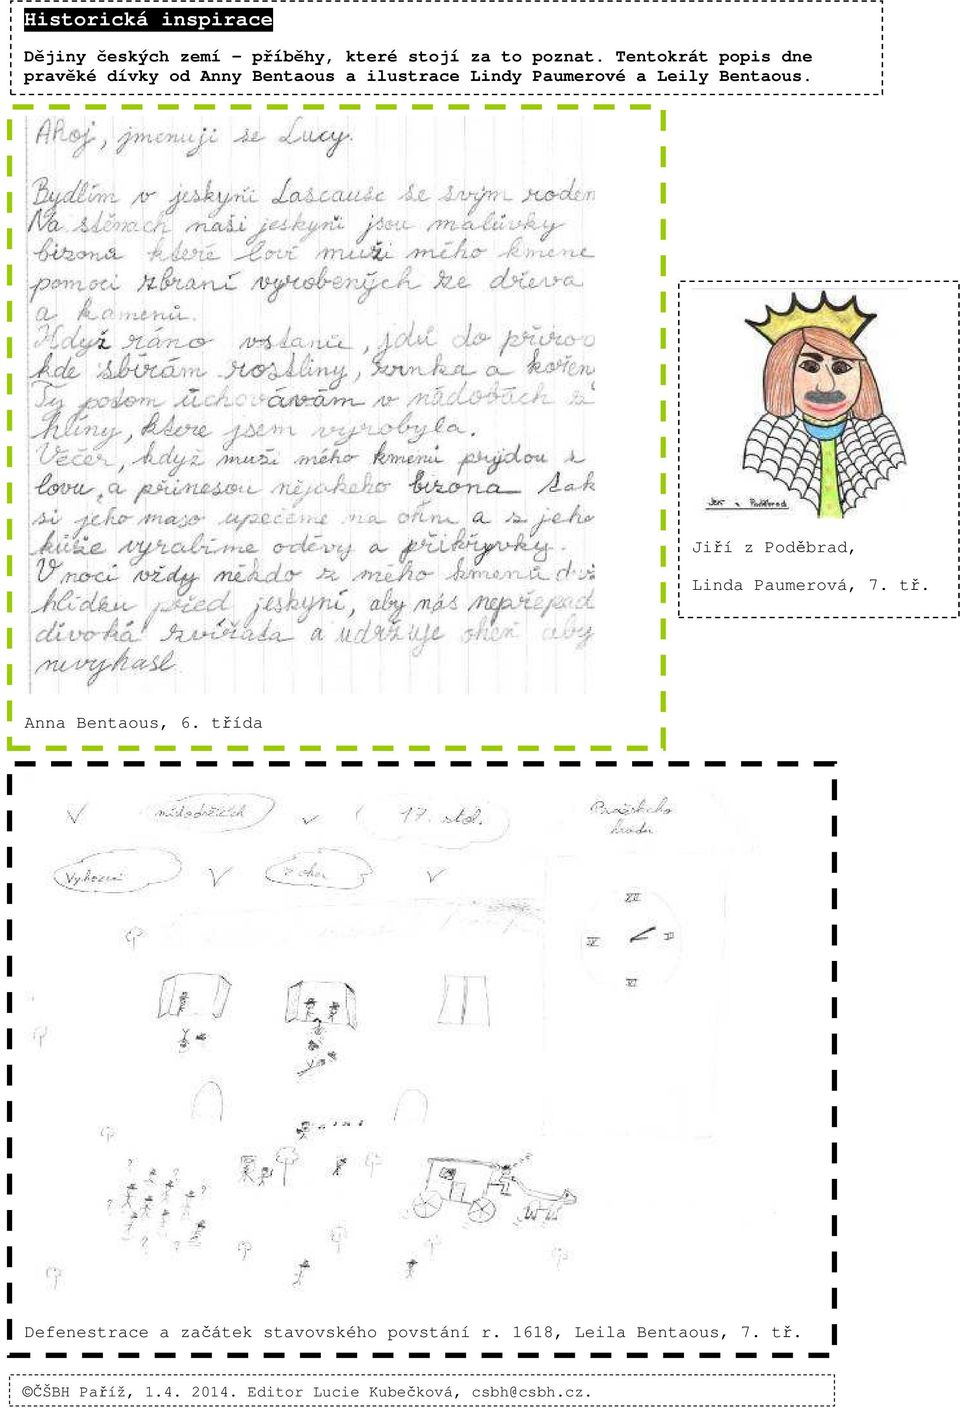 Historická inspirace
Dějiny českých zemí – příběhy, které stojí za to poznat. Tentokrát popis dne
pravěké dívky od Anny Bentaous a ilustrace Lindy Paumerové a Leily Bentaous.
Ahoj, jmenuji se Lucy.
Bydlím v jeskyni Lascausc se svým roden
Na stěnach naši jeskyňi jsou malůvky
bizona kteŕé loví muži mého kmene
pomoci zbraní vyrobených ze dřeva
a kamenů.
Když ráno vstanu, jdu do příroo
kde sbírám rostliny, zrnka a kořen
Ty potom uchovávám v nádobách z
hlíny, ktere jsem vyrobyla.
Večer, když muži mého kmenů prijdou z
lovu, a přinesou nějakeho bizona tak
si jeho maso upečeme na ohni a z jeho
kůže vyrabíme oděvy a přikřyvky.
V noci vždy někdo z mého kmenů drž
hlídku před jeskyní, aby nás nepřepad
divoká zvířata a udržuje oheň aby
nevyhasl.
Jiří z Poděbrad
Jiří z Poděbrad,
Linda Paumerová, 7. tř.
Anna Bentaous, 6. třída
V místodržících v 17. stol. Pražského
hradu
Vyhození V z oken V
XII
III
VI
Defenestrace a začátek stavovského povstání r. 1618, Leila Bentaous, 7. tř.
©ČŠBH Paříž, 1.4. 2014. Editor Lucie Kubečková, csbh@csbh.cz.